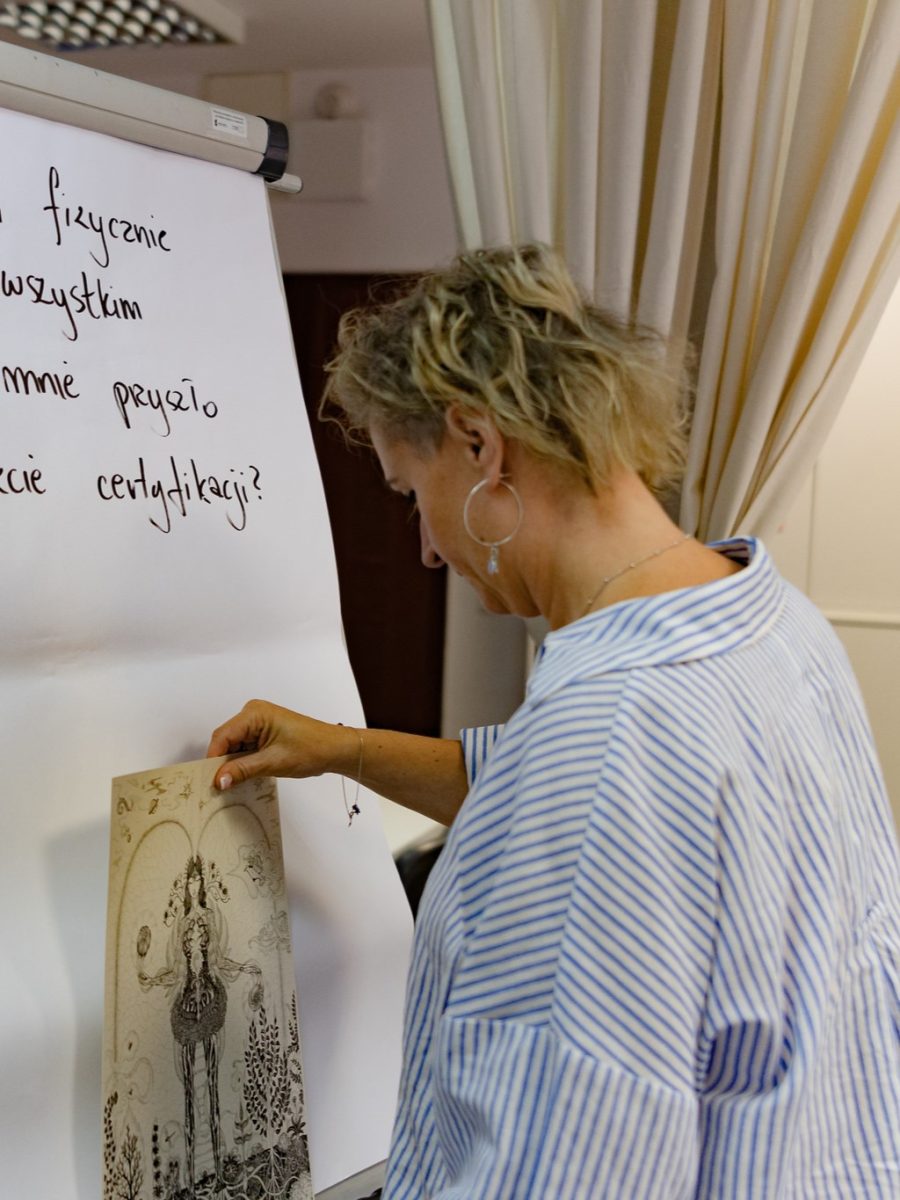 fizycznie
wszystkim
mnie przyszło
certyfikacji?